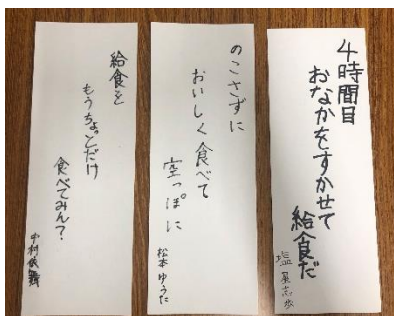 4時間目
おなかをすかせて
給食だ
塩
志歩
のこさずに
おいしく食べて
空っぽに
松本ゆうた
給食を
もうちょっとだけ
食べてみん?
中村